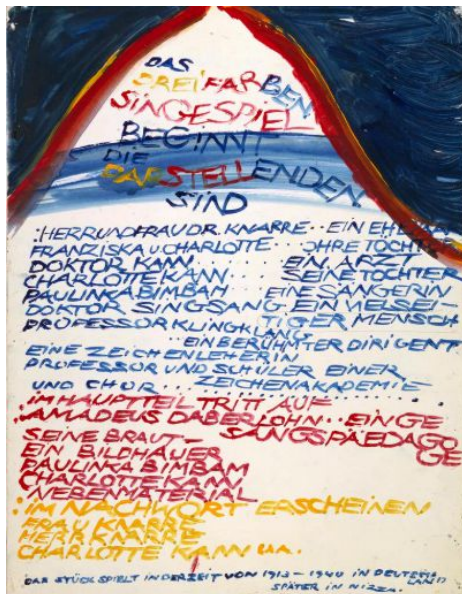 DAS
DREIFARBEN
SINGESPIEL
BEGINNT
DIE
DARSTELLENDEN
SIND
:HERR UND FRAU DR. KNARRE·· EIN EHEPAAR
FRANZISKA U CHARLOTTE···· IHRE TÖCHTER
DOKTOR KANN········ EIN ARZT
CHARLOTTE KANN········ SEINE TOCHTER
PAULINKA BIMBAM····· EINE SÄNGERIN
DOKTOR SINGSANG EIN VIELSEI-
PROFESSOR KLINGKLANG TIGER MENSCH
······· EIN BERÜHMTER DIRIGENT
EINE ZEICHENLEHERIN
PROFESSOR UND SCHÜLER EINER
UND CHOR···· ZEICHENAKADEMIE
:IM HAUPTTEIL TRITT AUF
:AMADEUS DABERLOHN·· EIN GE
SEINE BRAUT– SANGSPÄDAGO
EIN BILDHAUER GE
PAULINKA BIMBAM
CHARLOTTE KANN
NEBENMATERIAL
:IM NACHWORT ERSCHEINEN
FRAU KNARRE
HERR KNARRE
CHARLOTTE KANN U.A.
DAS STÜCK SPIELT IN DER ZEIT VON 1913–1940 IN DEUTSCH
LAND
SPÄTER IN NIZZA.